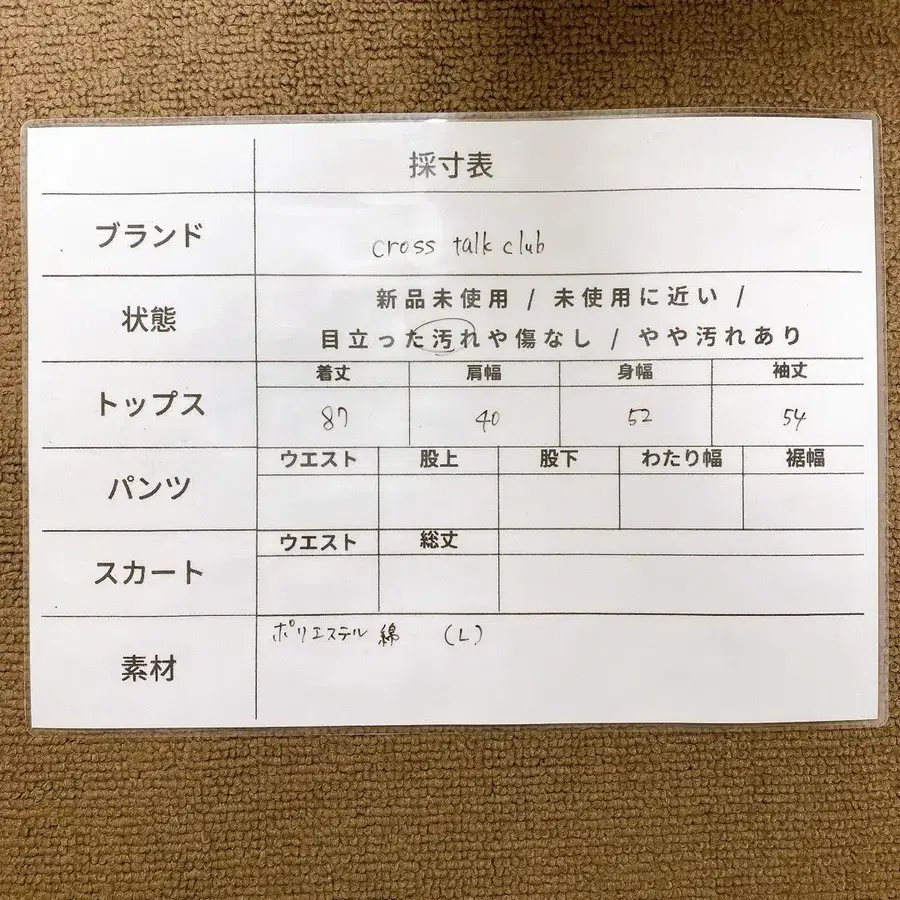 採寸表
ブランド
cross talk club
状態
新品未使用 / 未使用に近い /
目立った汚れや傷なし / やや汚れあり
トップス
着丈 肩幅 身幅 袖丈
87 40 52 54
パンツ
ウエスト 股上 股下 わたり幅 裾幅
スカート
ウエスト 総丈
素材
ポリエステル 綿 (L)